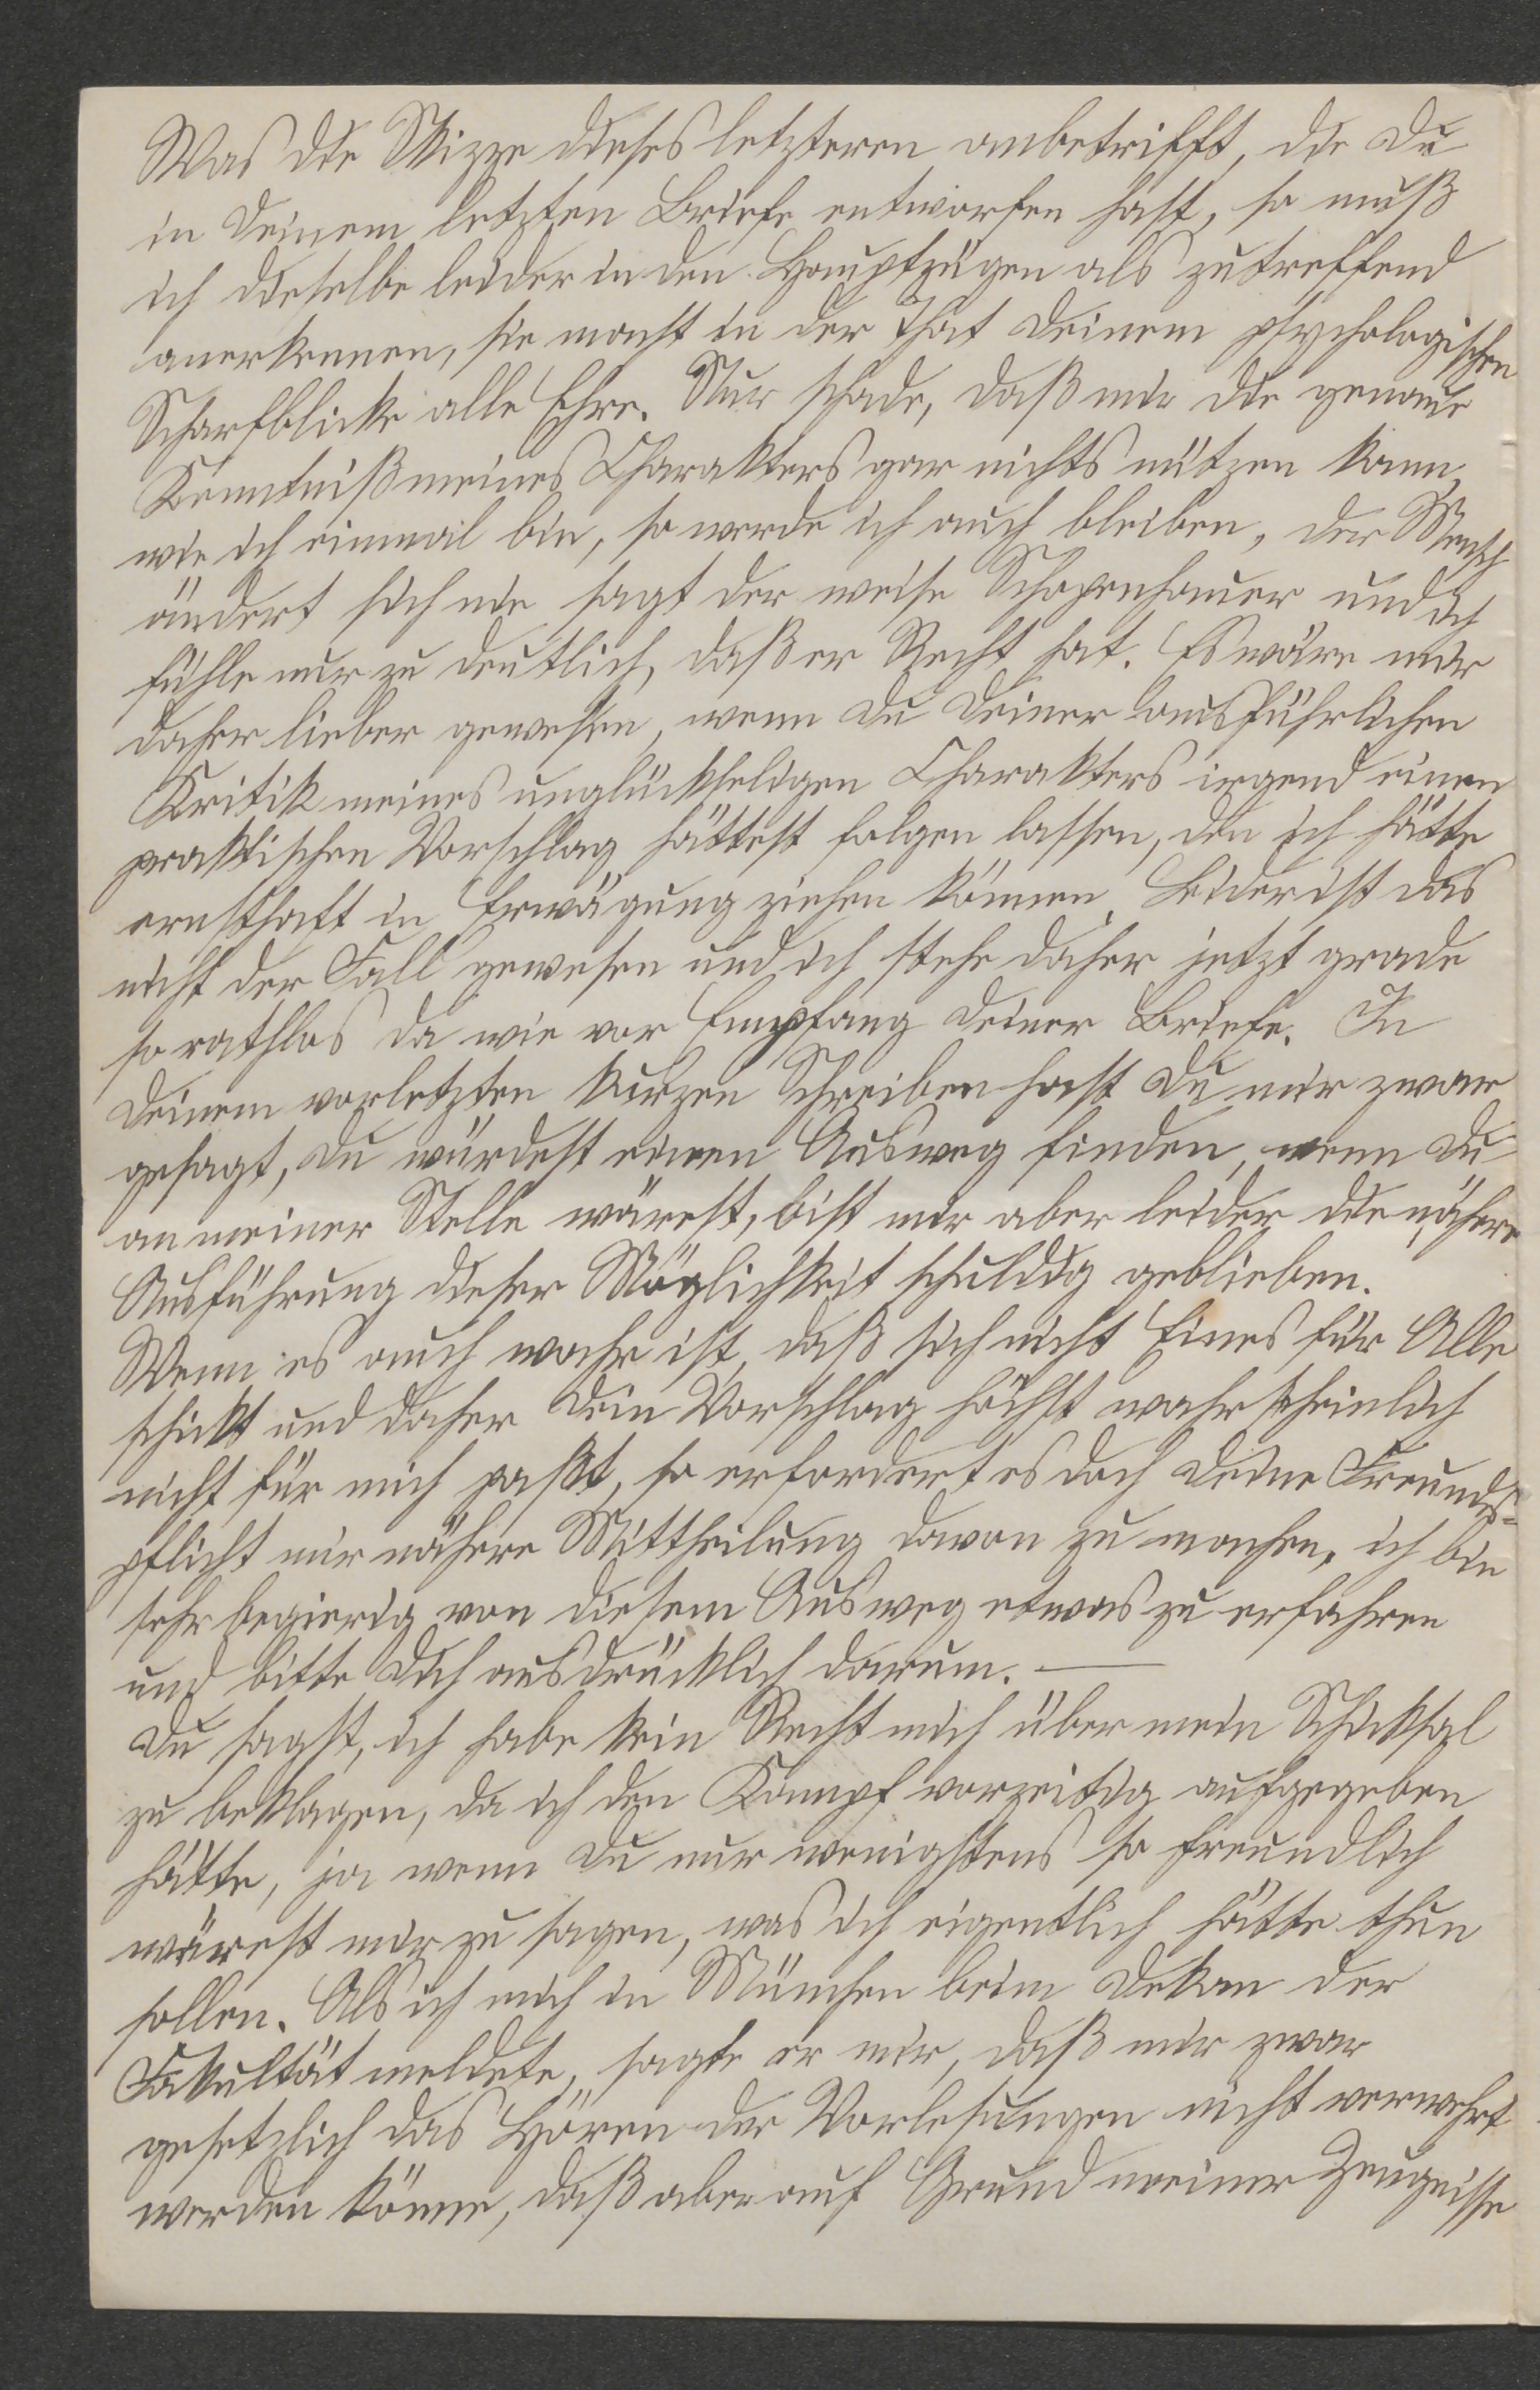 Was die Skizze dieses letzteren anbetrifft, die Du
in Deinem letzten Briefe entworfen hast, so muß
ich dieselbe leider in den Hauptzügen als zutreffend
anerkennen, sie macht in der That Deinem psychologischen
Scharfblicke alle Ehre. Nur schade, daß mir die genaue
Kenntniß meines Charakters gar nichts nützen kann,
wie ich einmal bin, so werde ich auch bleiben, der Mensch
ändert sich nie sagt der weise Schopenhauer und ich
fühle nur zu deutlich, daß er Recht hat. Es wäre mir
daher lieber gewesen, wenn Du Deiner ausführlichen
Kritik meines unglückseligen Charakters irgend einen
praktischen Vorschlag hättest folgen lassen, den ich hätte
ernsthaft in Erwägung ziehen können. Leider ist das
nicht der Fall gewesen und ich stehe daher jetzt grade
so rathlos da wie vor Empfang Deiner Briefe. In
Deinem vorletzten kurzen Schreiben hast Du mir zwar
gesagt, Du würdest einen Ausweg finden, wenn Du
an meiner Stelle wärest, bist mir aber leider die nähere
Ausführung dieser Möglichkeit schuldig geblieben.
Wenn es auch wahr ist, daß sich nicht Eines für Alle
schickt und daher Dein Vorschlag höchst wahrscheinlich
nicht für mich paßt, so erfordert es doch Deine Freunds-
pflicht mir nähere Mittheilung davon zu machen, ich bin
sehr begierig von diesem Ausweg etwas zu erfahren
und bitte Dich ausdrücklich darum. —
Du sagst, ich habe kein Recht mich über mein Schicksal
zu beklagen, da ich den Kampf vorzeitig aufgegeben
hätte, ja wenn Du nur wenigstens so freundlich
wärest mir zu sagen, was ich eigentlich hätte thun
sollen. Als ich mich in München beim Dekan der
Fakultät meldete, sagte er mir, daß mir zwar
gesetzlich das Hören der Vorlesungen nicht verwehrt
werden könne, daß aber auf Grund meiner Zeugnisse